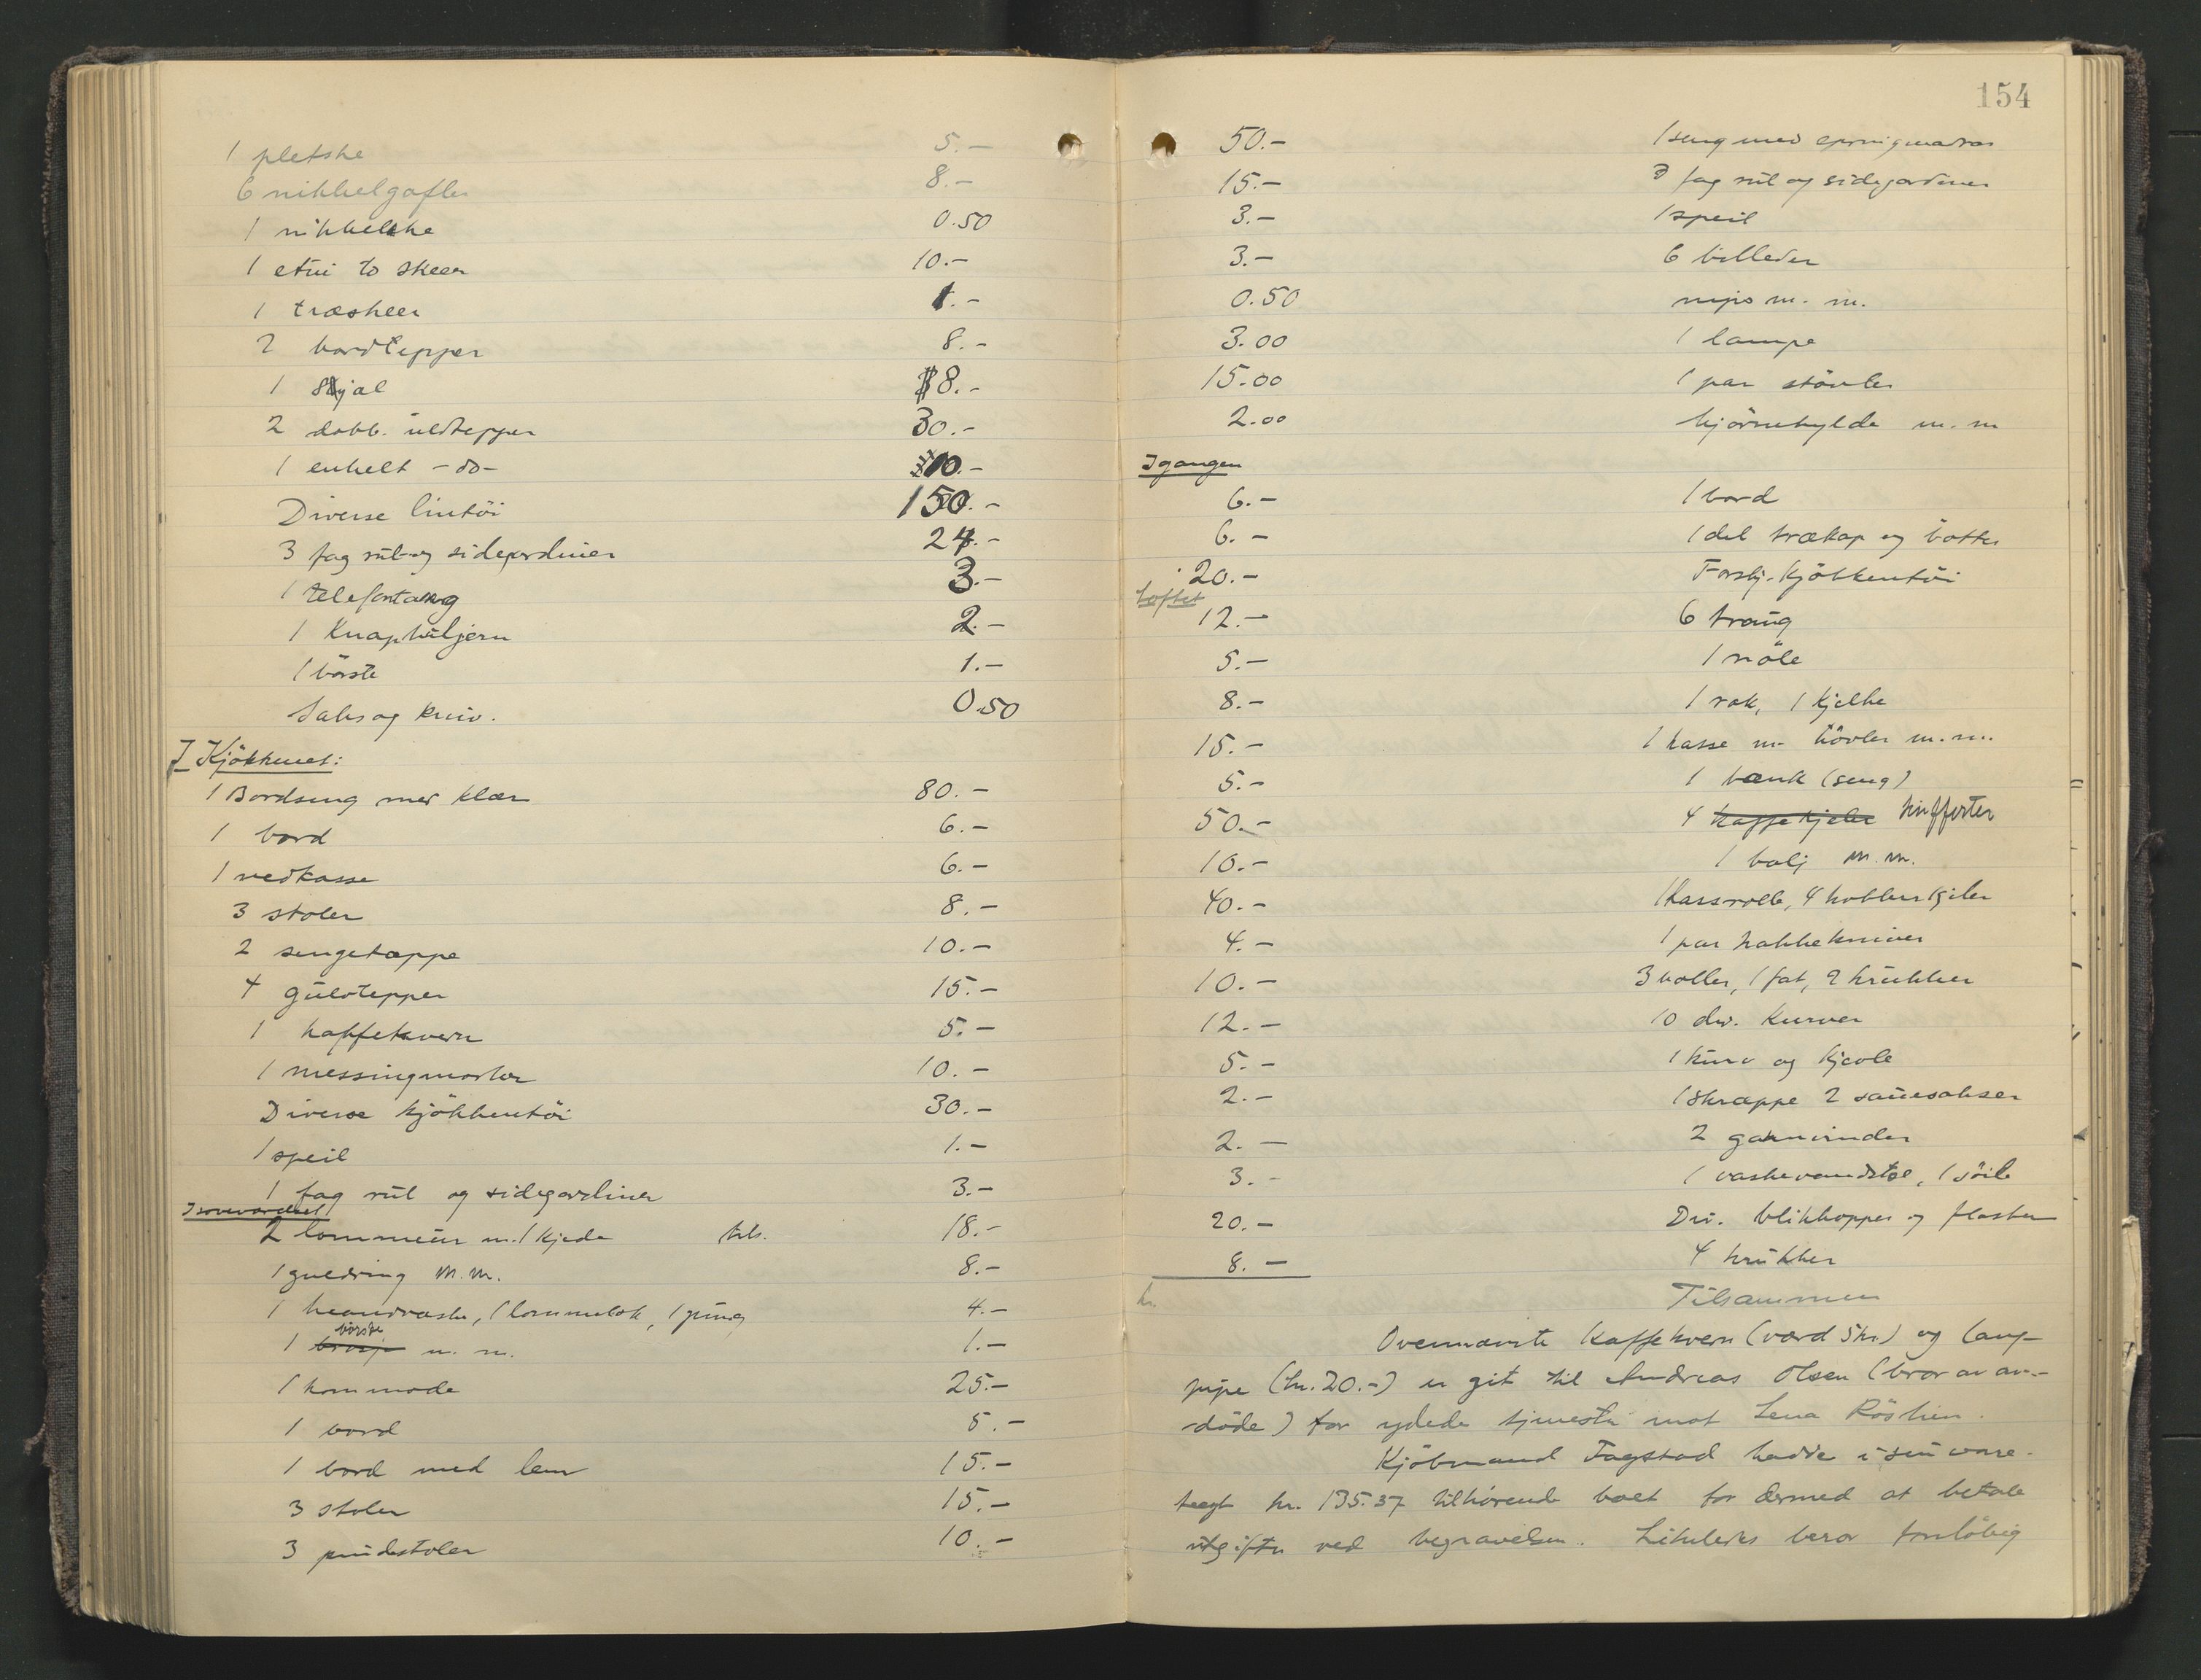 1 pletske 5.-
6 nikkelgafler 8.-
1 nikkelske 0.50
1 etui to skeer 10.-
1 træskeer 1.-
2 bordtepper 8.-
1 Sjal 8.-
2 dobb. uldtepper 30.-
1 enkelt -do- 10.-
Diverse lintöi 150.-
3 fag rul- og sidegardiner 24.-
1 telefontang 3.-
1 Knaphuljern 2.-
1 börste 1.-
Saks og kniv. 0.50
I Kjökkenet:
1 Bordseng med klær 80.-
1 bord 6.-
1 vedkasse 6.-
3 stoler 8.-
2 sengetæppe 10.-
4 gulvtepper 15.-
1 kaffekvern 5.-
1 messingmorter 10.-
Diverse kjökkentöi 30.-
1 speil 1.-
1 fag rul og sidegardiner 3.-
I soveværelset
2 lommeur m. 1 kjede tils. 18.-
1 guldring m.m. 8.-
1 haandvæske, 1 lommebok, 1 pung 4.-
1 börste m. m. 1.-
1 kommode 25.-
1 bord 5.-
1 bord med lem 15.-
3 stoler 15.-
3 pindestoler 10.-
154
50.- 1 seng med springmadras
15.- 3 fag rul og sidegardiner
3.- 1 speil
3.- 6 billeder
0.50 nips m. m.
3.00 1 lampe
15.00 1 par stövler
2.00 hjörnehylde m. m
I gangen
6.- 1 bord
6.- 1 del trækop og bötter
20.- Forskj. Kjökkentöi
Loftet
12.- 6 traug
5.- 1 nöle
8.- 1 rok, 1 kjelke
15.- 1 kasse m. hövler m.m.
5.- 1 bænk (seng)
50.- 4 kaffekjeler kufferter
10.- 1 balj m.m.
40.- 1 kasserolle, 4 kobberkjeler
4.- 1 par hakkekniver
10.- 3 boller, 1 fat, 2 krukker
12.- 10 div. Kurver
5.- 1 kurv og kjevle
2.- 1 skræppe 2 sauesakser
2.- 2 garnvinder
3.- 1 vaskevandstol, 1 söile
20.- Div. blikkopper og flasker
8.- 4 krukker
kr. Tilsammen
Ovennævnte Kaffekvern (værd 5 kr.) og lang-
pipe (kr. 20.-) er git til Andreas Olsen (bror av av-
döde) for ydede tjenester mot Lena Röslien.
Kjöbmand Fagstad hadde i sin vare-
tægt kr. 135.37 tilhörende boet for dermed at betale
utgifter ved begravelsen. Likeledes beror foreløbig